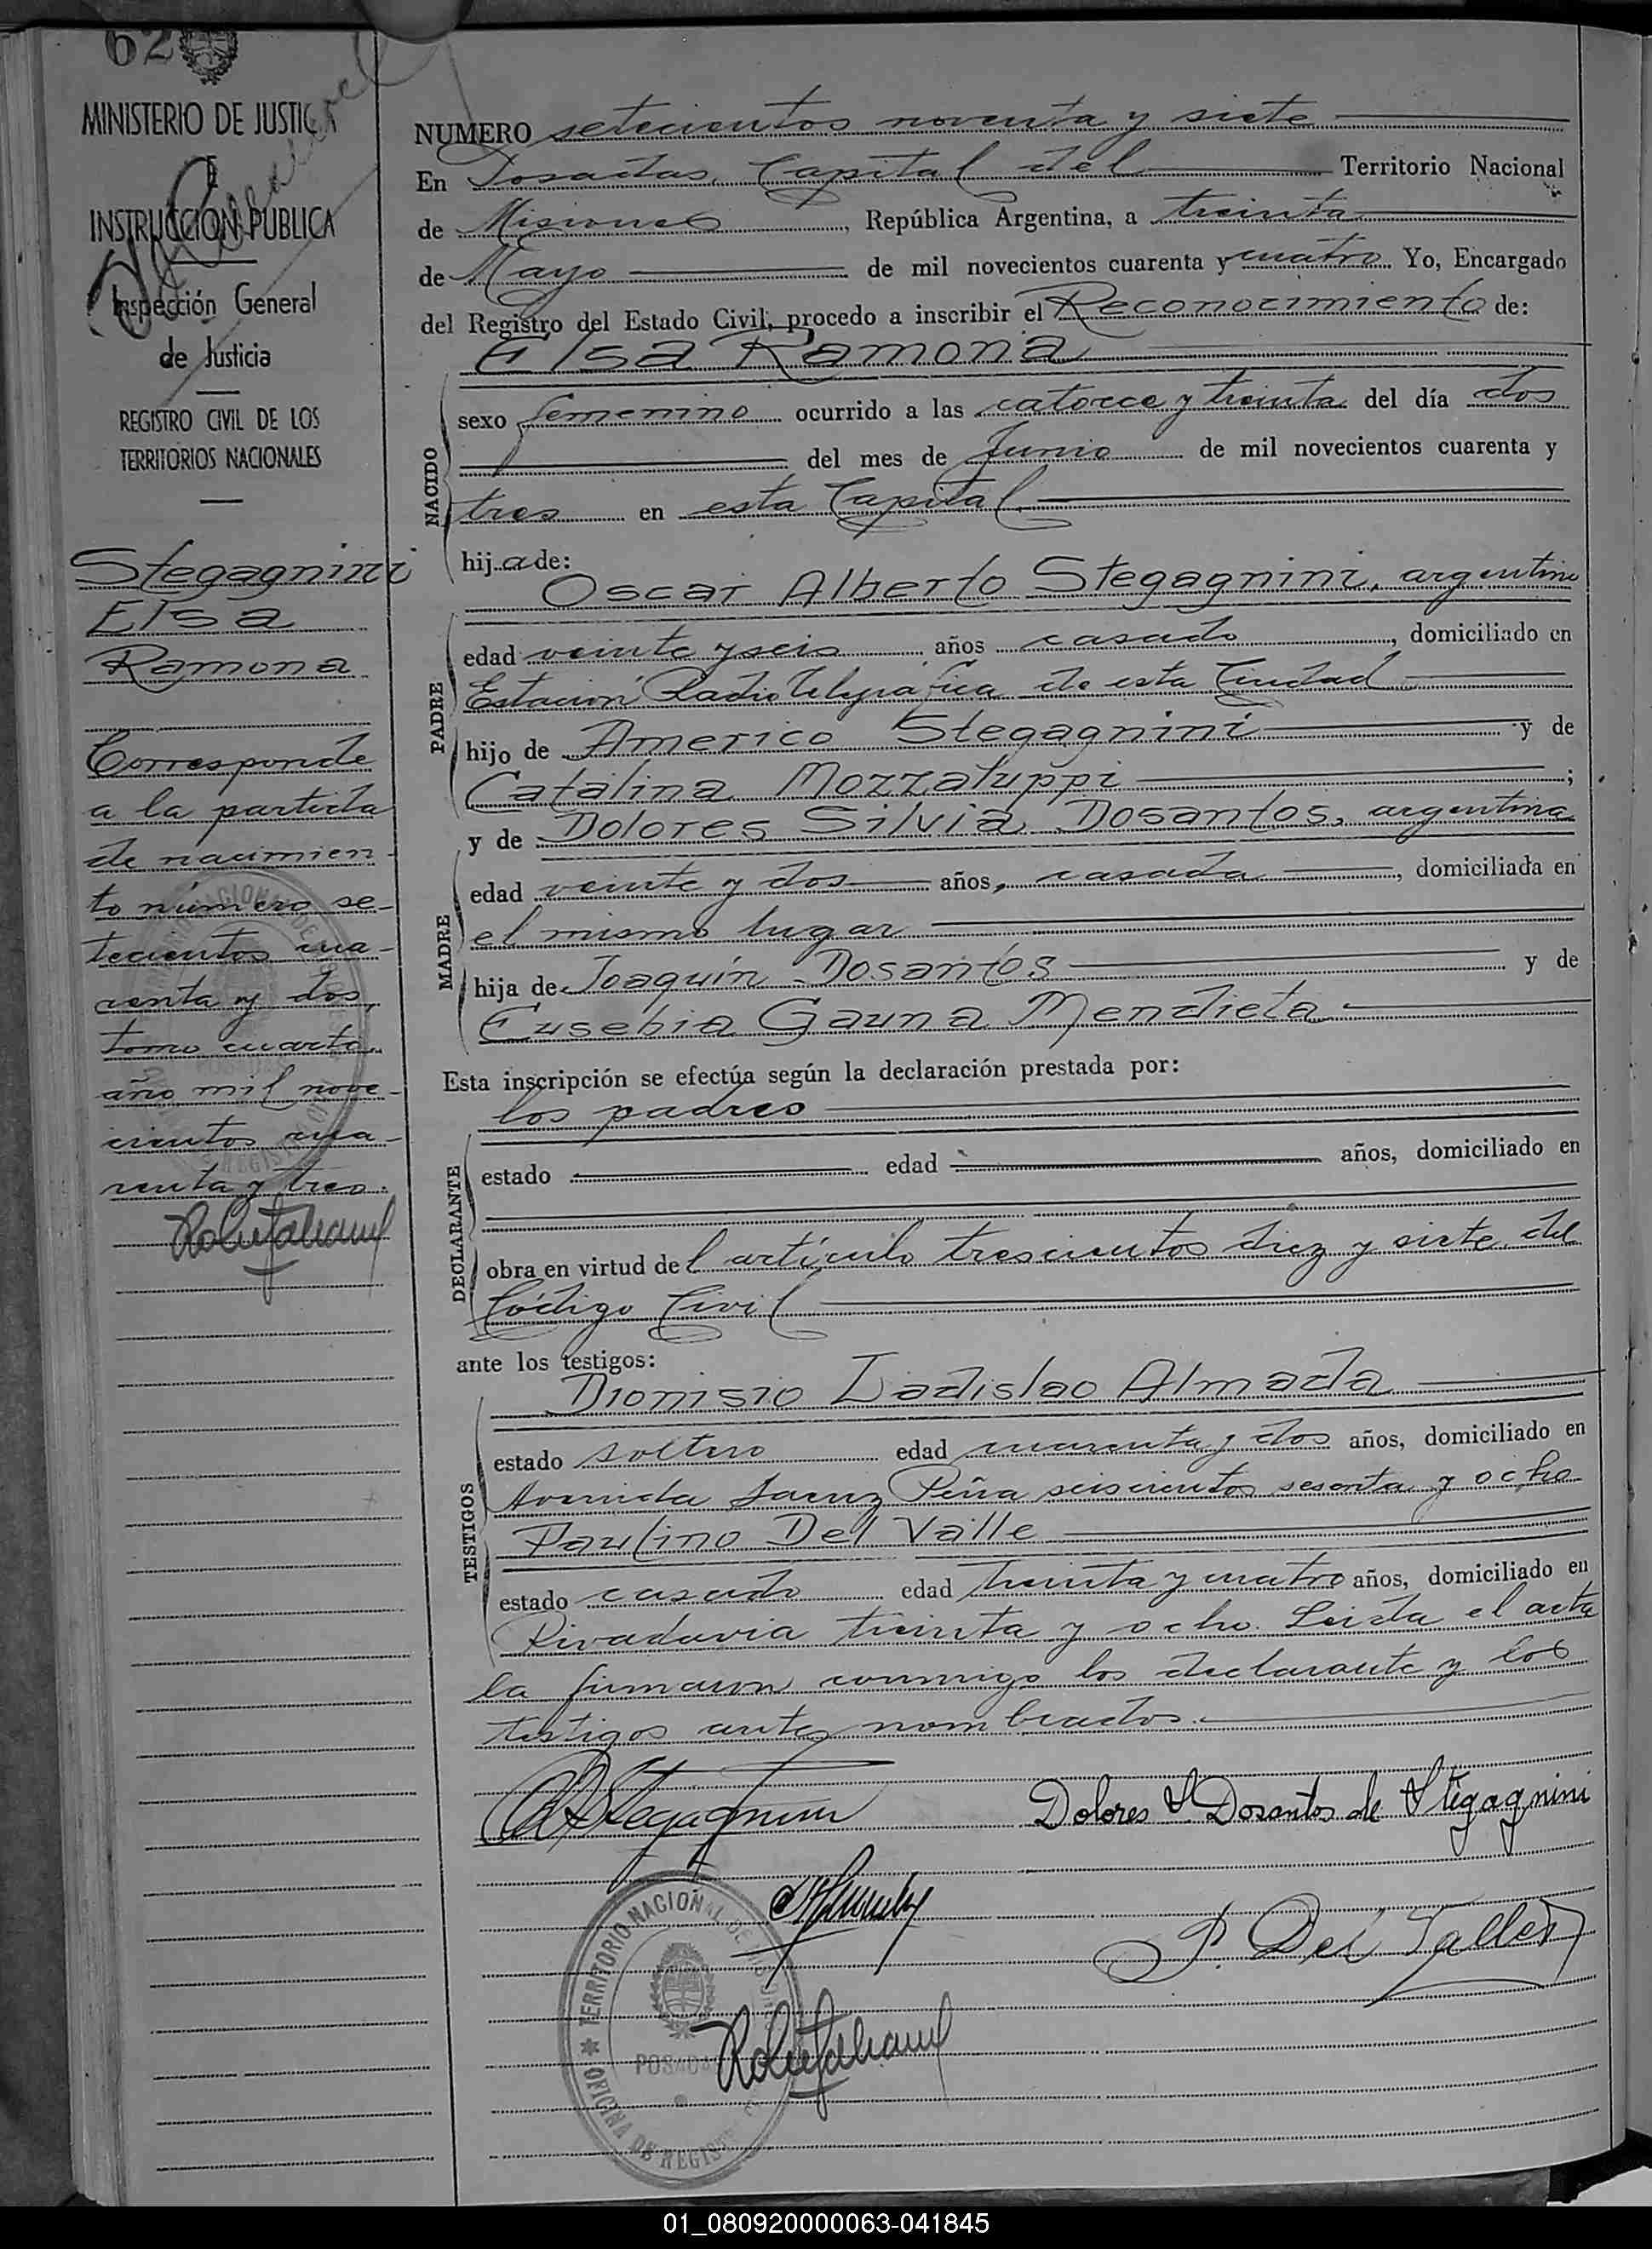 62
MINISTERIO DE JUSTICIA
E
INSTRUCCION PUBLICA
Inspección General
de Justicia
REGISTRO CIVIL DE LOS
TERRITORIOS NACIONALES
Stegagnini
Elsa
Ramona
Corresponde
a la partida
de nacimien-
to número se-
tecientos cua-
renta y dos,
tomo cuarto
año mil nove-
cientos cua-
renta y tres.
NUMERO setecientos noventa y siete
En Posadas, Capital del Territorio Nacional
de Misiones, República Argentina, a treinta
de Mayo de mil novecientos cuarenta y cuatro Yo, Encargado
del Registro del Estado Civil, procedo a inscribir el Reconocimiento de:
Elsa Ramona
NACIDO
sexo femenino ocurrido a las catorce y treinta del día dos
del mes de Junio de mil novecientos cuarenta y
tres en esta Capital
hija de:
Oscar Alberto Stegagnini, argentino
PADRE
edad veinte y seis años casado, domiciliado en
Estación Radiotelegráfica de esta Ciudad
hijo de Americo Stegagnini y de
Catalina Mozzatuppi;
y de Dolores Silvia Dosantos, argentina
MADRE
edad veinte y dos años, casada, domiciliada en
el mismo lugar
hija de Joaquín Dosantos y de
Eusebia Gauna Mendieta
Esta inscripción se efectúa según la declaración prestada por:
los padres
DECLARANTE
estado edad años, domiciliado en
obra en virtud del artículo trescientos diez y siete del
Código Civil
ante los testigos:
Dionisio Ladislao Almada
TESTIGOS
estado soltero edad cuarenta y dos años, domiciliado en
Avenida Saenz Peña seiscientos sesenta y ocho
Paulino Del Valle
estado casado edad treinta y cuatro años, domiciliado en
Rivadavia treinta y ocho. Leida el acta
la firmaron conmigo los declarante y los
testigos antes nombrados.
Stegagnini
Dolores S Dosantos de Stegagnini
P. Del Valle
TERRITORIO NACIONAL DE MISIONES
POSADAS
OFICINA DE REGISTRO
01_080920000063-041845